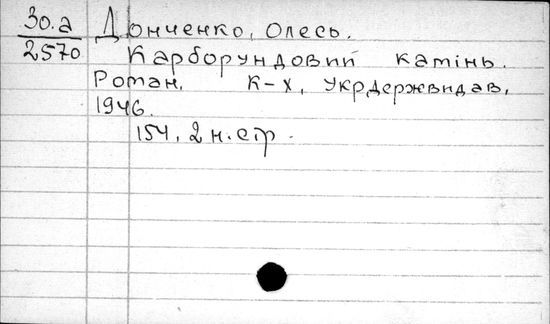 30.а
2570
Дончєнко, Олесь.
Карборундовий камінь.
Роман. К-Х, Укрдержвидав,
1946.
154, 2 н.стр.